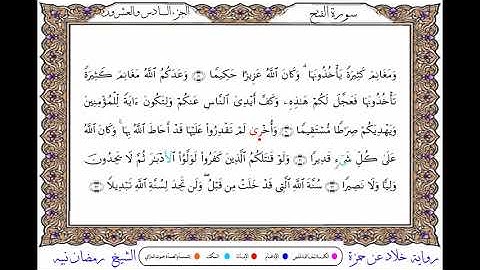 سورة الفتح
الجزء السادس والعشرون
وَمَغَانِمَ كَثِيرَةً يَأْخُذُونَهَا ۗ وَكَانَ ٱللَّهُ عَزِيزًا حَكِيمًا ۝ وَعَدَكُمُ ٱللَّهُ مَغَانِمَ كَثِيرَةً
تَأْخُذُونَهَا فَعَجَّلَ لَكُمْ هَٰذِهِۦ وَكَفَّ أَيْدِىَ ٱلنَّاسِ عَنكُمْ وَلِتَكُونَ ءَايَةً لِّلْمُؤْمِنِينَ
وَيَهْدِيَكُمْ صِرَٰطًا مُّسْتَقِيمًا ۝ وَأُخْرَىٰ لَمْ تَقْدِرُوا۟ عَلَيْهَا قَدْ أَحَاطَ ٱللَّهُ بِهَا ۚ وَكَانَ ٱللَّهُ
عَلَىٰ كُلِّ شَىْءٍ قَدِيرًا ۝ وَلَوْ قَٰتَلَكُمُ ٱلَّذِينَ كَفَرُوا۟ لَوَلَّوُا۟ ٱلْأَدْبَٰرَ ثُمَّ لَا يَجِدُونَ
وَلِيًّا وَلَا نَصِيرًا ۝ سُنَّةَ ٱللَّهِ ٱلَّتِى قَدْ خَلَتْ مِن قَبْلُ ۖ وَلَن تَجِدَ لِسُنَّةِ ٱللَّهِ تَبْدِيلًا ۝
رواية خلاد عن حمزة
الشيخ رمضان نبيه